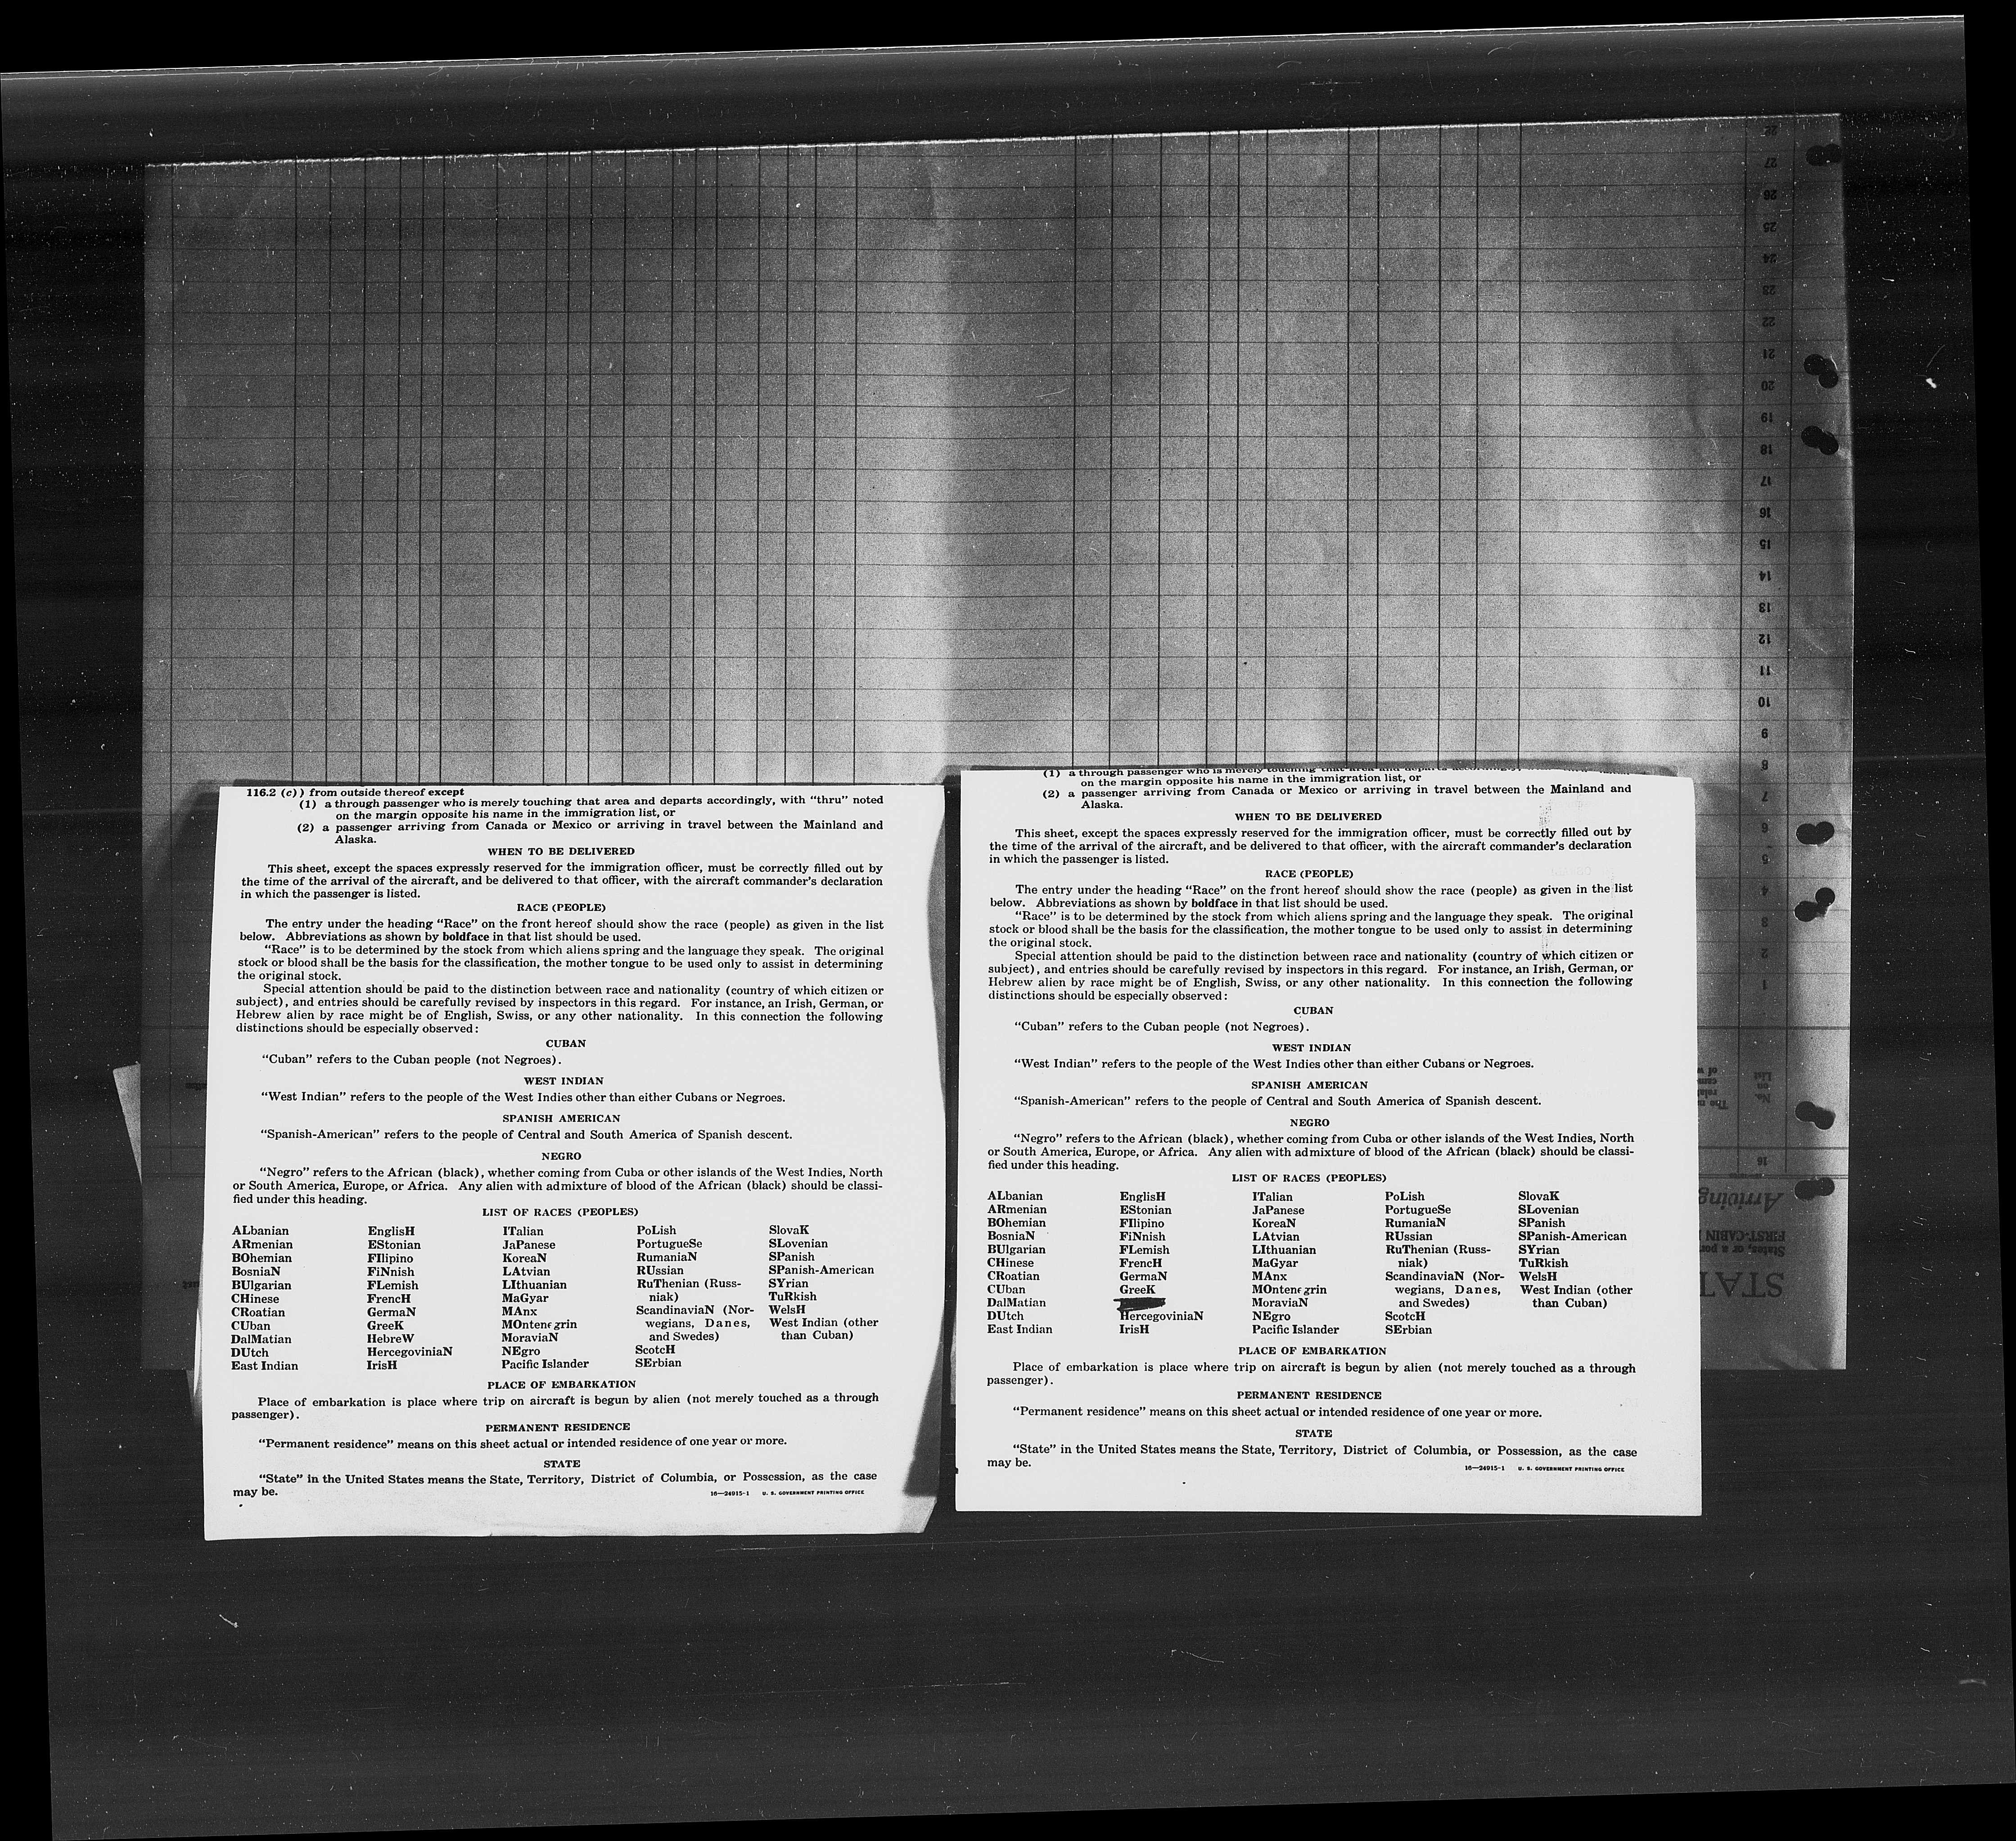 116.2 (c)) from outside thereof except
(1) a through passenger who is merely touching that area and departs accordingly, with “thru” noted
on the margin opposite his name in the immigration list, or
(2) a passenger arriving from Canada or Mexico or arriving in travel between the Mainland and
Alaska.
WHEN TO BE DELIVERED
This sheet, except the spaces expressly reserved for the immigration officer, must be correctly filled out by
the time of the arrival of the aircraft, and be delivered to that officer, with the aircraft commander's declaration
in which the passenger is listed.
RACE (PEOPLE)
The entry under the heading “Race” on the front hereof should show the race (people) as given in the list
below. Abbreviations as shown by boldface in that list should be used.
“Race” is to be determined by the stock from which aliens spring and the language they speak. The original
stock or blood shall be the basis for the classification, the mother tongue to be used only to assist in determining
the original stock.
Special attention should be paid to the distinction between race and nationality (country of which citizen or
subject), and entries should be carefully revised by inspectors in this regard. For instance, an Irish, German, or
Hebrew alien by race might be of English, Swiss, or any other nationality. In this connection the following
distinctions should be especially observed:
CUBAN
“Cuban” refers to the Cuban people (not Negroes).
WEST INDIAN
“West Indian” refers to the people of the West Indies other than either Cubans or Negroes.
SPANISH AMERICAN
“Spanish-American” refers to the people of Central and South America of Spanish descent.
NEGRO
“Negro” refers to the African (black), whether coming from Cuba or other islands of the West Indies, North
or South America, Europe, or Africa. Any alien with admixture of blood of the African (black) should be classi-
fied under this heading.
LIST OF RACES (PEOPLES)
ALbanian EnglisH ITalian PoLish SlovaK
ARmenian EStonian JaPanese PortugueSe SLovenian
BOhemian FIlipino KoreaN RumaniaN SPanish
BosniaN FiNnish LAtvian RUssian SPanish-American
BUlgarian FLemish LIthuanian RuThenian (Russ- SYrian
CHinese FrencH MaGyar niak) TuRkish
CRoatian GermaN MAnx ScandinaviaN (Nor- WelsH
CUban GreeK MOntenegrin wegians, Danes, West Indian (other
DalMatian HebreW MoraviaN and Swedes) than Cuban)
DUtch HercegoviniaN NEgro ScotcH
East Indian IrisH Pacific Islander SErbian
PLACE OF EMBARKATION
Place of embarkation is place where trip on aircraft is begun by alien (not merely touched as a through
passenger).
PERMANENT RESIDENCE
“Permanent residence” means on this sheet actual or intended residence of one year or more.
STATE
“State” in the United States means the State, Territory, District of Columbia, or Possession, as the case
may be.
16—24915-1 U. S. GOVERNMENT PRINTING OFFICE
(1) a through passenger who is merely touching that area and departs
on the margin opposite his name in the immigration list, or
(2) a passenger arriving from Canada or Mexico or arriving in travel between the Mainland and
Alaska.
WHEN TO BE DELIVERED
This sheet, except the spaces expressly reserved for the immigration officer, must be correctly filled out by
the time of the arrival of the aircraft, and be delivered to that officer, with the aircraft commander's declaration
in which the passenger is listed.
RACE (PEOPLE)
The entry under the heading “Race” on the front hereof should show the race (people) as given in the list
below. Abbreviations as shown by boldface in that list should be used.
“Race” is to be determined by the stock from which aliens spring and the language they speak. The original
stock or blood shall be the basis for the classification, the mother tongue to be used only to assist in determining
the original stock.
Special attention should be paid to the distinction between race and nationality (country of which citizen or
subject), and entries should be carefully revised by inspectors in this regard. For instance, an Irish, German, or
Hebrew alien by race might be of English, Swiss, or any other nationality. In this connection the following
distinctions should be especially observed:
CUBAN
“Cuban” refers to the Cuban people (not Negroes).
WEST INDIAN
“West Indian” refers to the people of the West Indies other than either Cubans or Negroes.
SPANISH AMERICAN
“Spanish-American” refers to the people of Central and South America of Spanish descent.
NEGRO
“Negro” refers to the African (black), whether coming from Cuba or other islands of the West Indies, North
or South America, Europe, or Africa. Any alien with admixture of blood of the African (black) should be classi-
fied under this heading.
LIST OF RACES (PEOPLES)
ALbanian EnglisH ITalian PoLish SlovaK
ARmenian EStonian JaPanese PortugueSe SLovenian
BOhemian FIlipino KoreaN RumaniaN SPanish
BosniaN FiNnish LAtvian RUssian SPanish-American
BUlgarian FLemish LIthuanian RuThenian (Russ- SYrian
CHinese FrencH MaGyar niak) TuRkish
CRoatian GermaN MAnx ScandinaviaN (Nor- WelsH
CUban GreeK MOntenegrin wegians, Danes, West Indian (other
DalMatian MoraviaN and Swedes) than Cuban)
DUtch HercegoviniaN NEgro ScotcH
East Indian IrisH Pacific Islander SErbian
PLACE OF EMBARKATION
Place of embarkation is place where trip on aircraft is begun by alien (not merely touched as a through
passenger).
PERMANENT RESIDENCE
“Permanent residence” means on this sheet actual or intended residence of one year or more.
STATE
“State” in the United States means the State, Territory, District of Columbia, or Possession, as the case
may be.
16—24915-1 U. S. GOVERNMENT PRINTING OFFICE
28
27
26
25
24
23
22
21
20
19
18
17
16
15
14
13
12
11
10
9
8
7
6
5
4
3
2
1
No.
on
List
16
Arriving
FIRST-CABIN
States, or a por
STAT